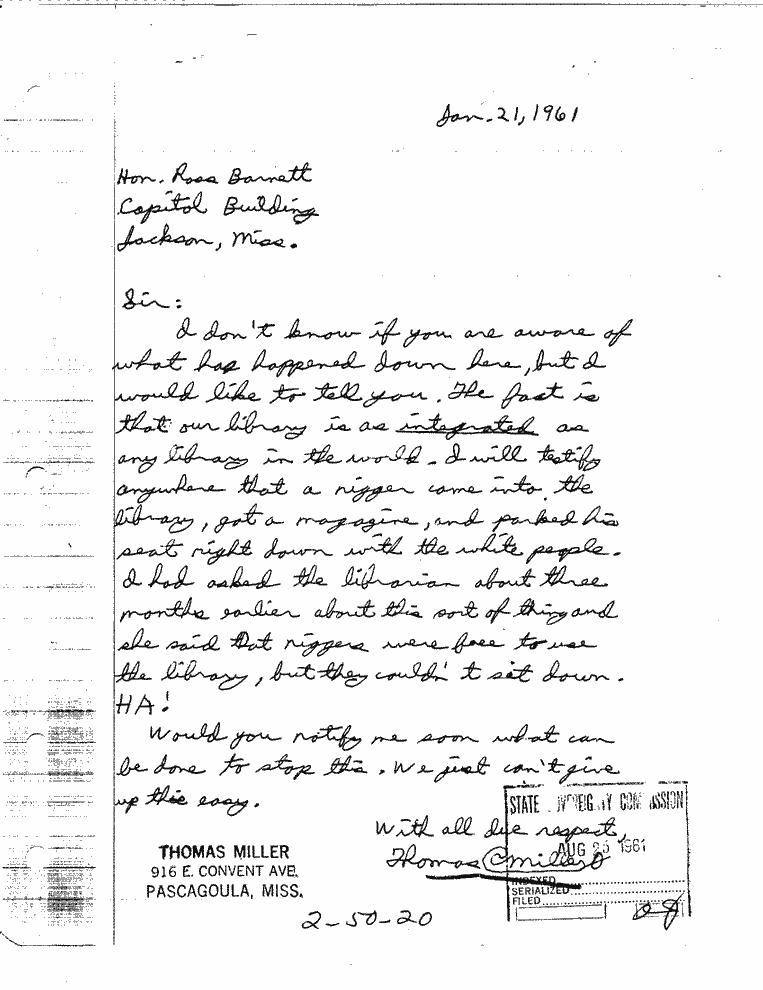 Jan. 21, 1961
Hon. Ross Barnett
Capitol Building
Jackson, Miss.
Sir:
I don't know if you are aware of
what has happened down here, but I
would like to tell you. The fact is
that our library is as integrated as
any library in the world. I will testify
anywhere that a nigger came into the
library, got a magazine, and parked his
seat right down with the white people.
I had asked the librarian about three
months earlier about this sort of thing and
she said that niggers were free to use
the library, but they couldn't sit down.
HA!
Would you notify me soon what can
be done to stop this. We just can't give
up this easy.
With all due respect,
Thomas C Miller
THOMAS MILLER
916 E. CONVENT AVE.
PASCAGOULA, MISS.
STATE SOVEREIGNTY COMMISSION
AUG 25 1961
INDEXED
SERIALIZED
FILED
2-50-20